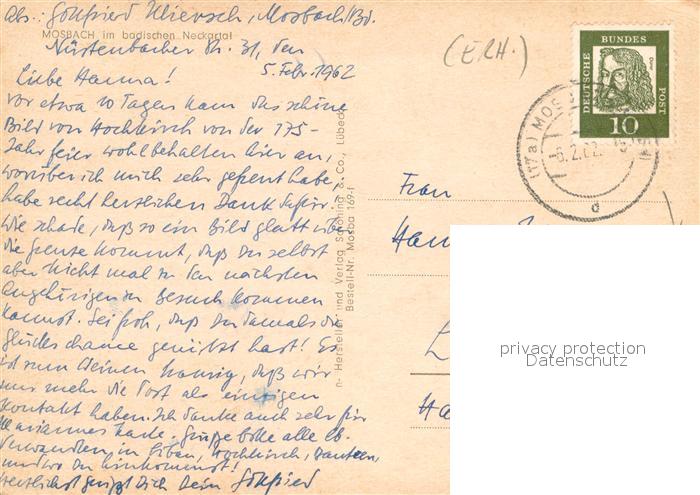 Abs.: Gottfried Miersch, Mosbach/Bd.
MOSBACH im badischen Neckartal
Nüstenbacher Str. 31, den
5. Febr. 1962
Liebe Hanna!
vor etwa 10 Tagen kam das schöne
Bild von Hochkirch von der 175-
Jahrfeier wohlbehalten hier an,
worüber ich mich sehr gefreut habe,
habe recht herzlichen Dank dafür.
Wie schade, daß so ein Bild glatt über
die Grenze kommt, daß Du selbst
aber nicht mal zu den nächsten
Angehörigen zu Besuch kommen
kannst. Sei froh, daß Du damals die
Glückschance genützt hast! Es
ist zum Weinen traurig, daß wir
nur mehr die Post als einzigen
Kontakt haben. Ich danke auch sehr für
Mariannes Karte. Grüße bitte alle lb.
Verwandten in Löbau, Hochkirch, Bautzen,
und wo Du hinkommst!
Herzlichst grüßt Dich Dein Gottfried
n- Hersteller und Verlag Schöning & Co., Lübeck
Bestell-Nr. Mosba 169-f
(ERH.)
DEUTSCHE BUNDES POST
Dürer
10
(17a) MOS
-6.2.62.
d
Frau
Han
L
Ha
privacy protection
Datenschutz